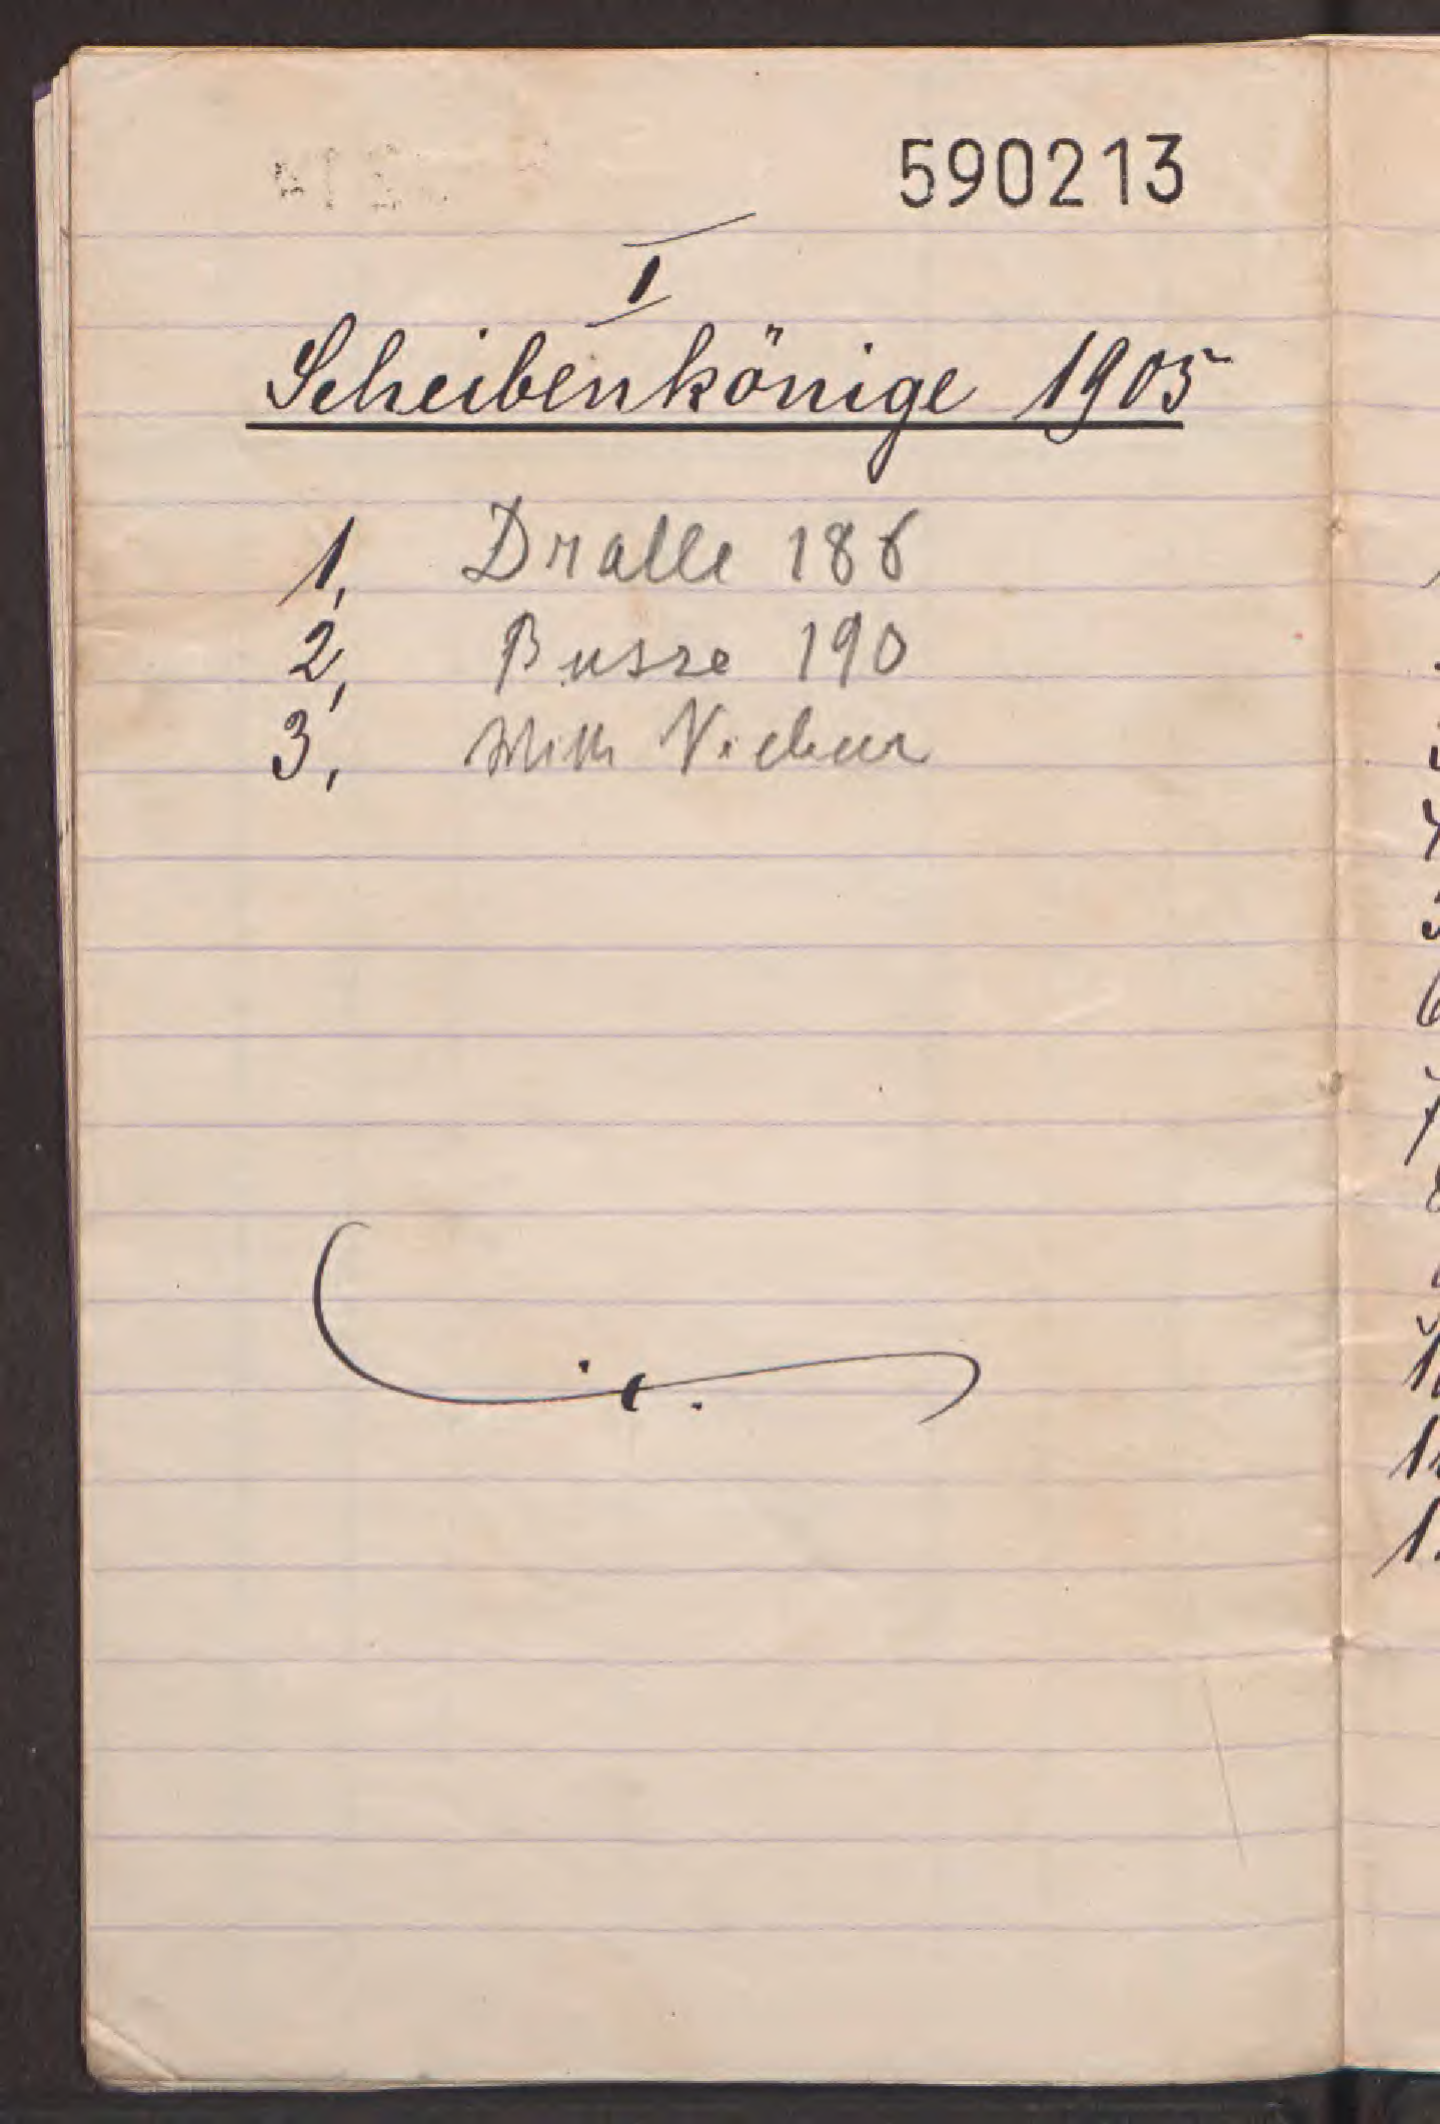 590213
I
Scheibenkönige 1905
1, Dralle 186
2, Busse 190
3,